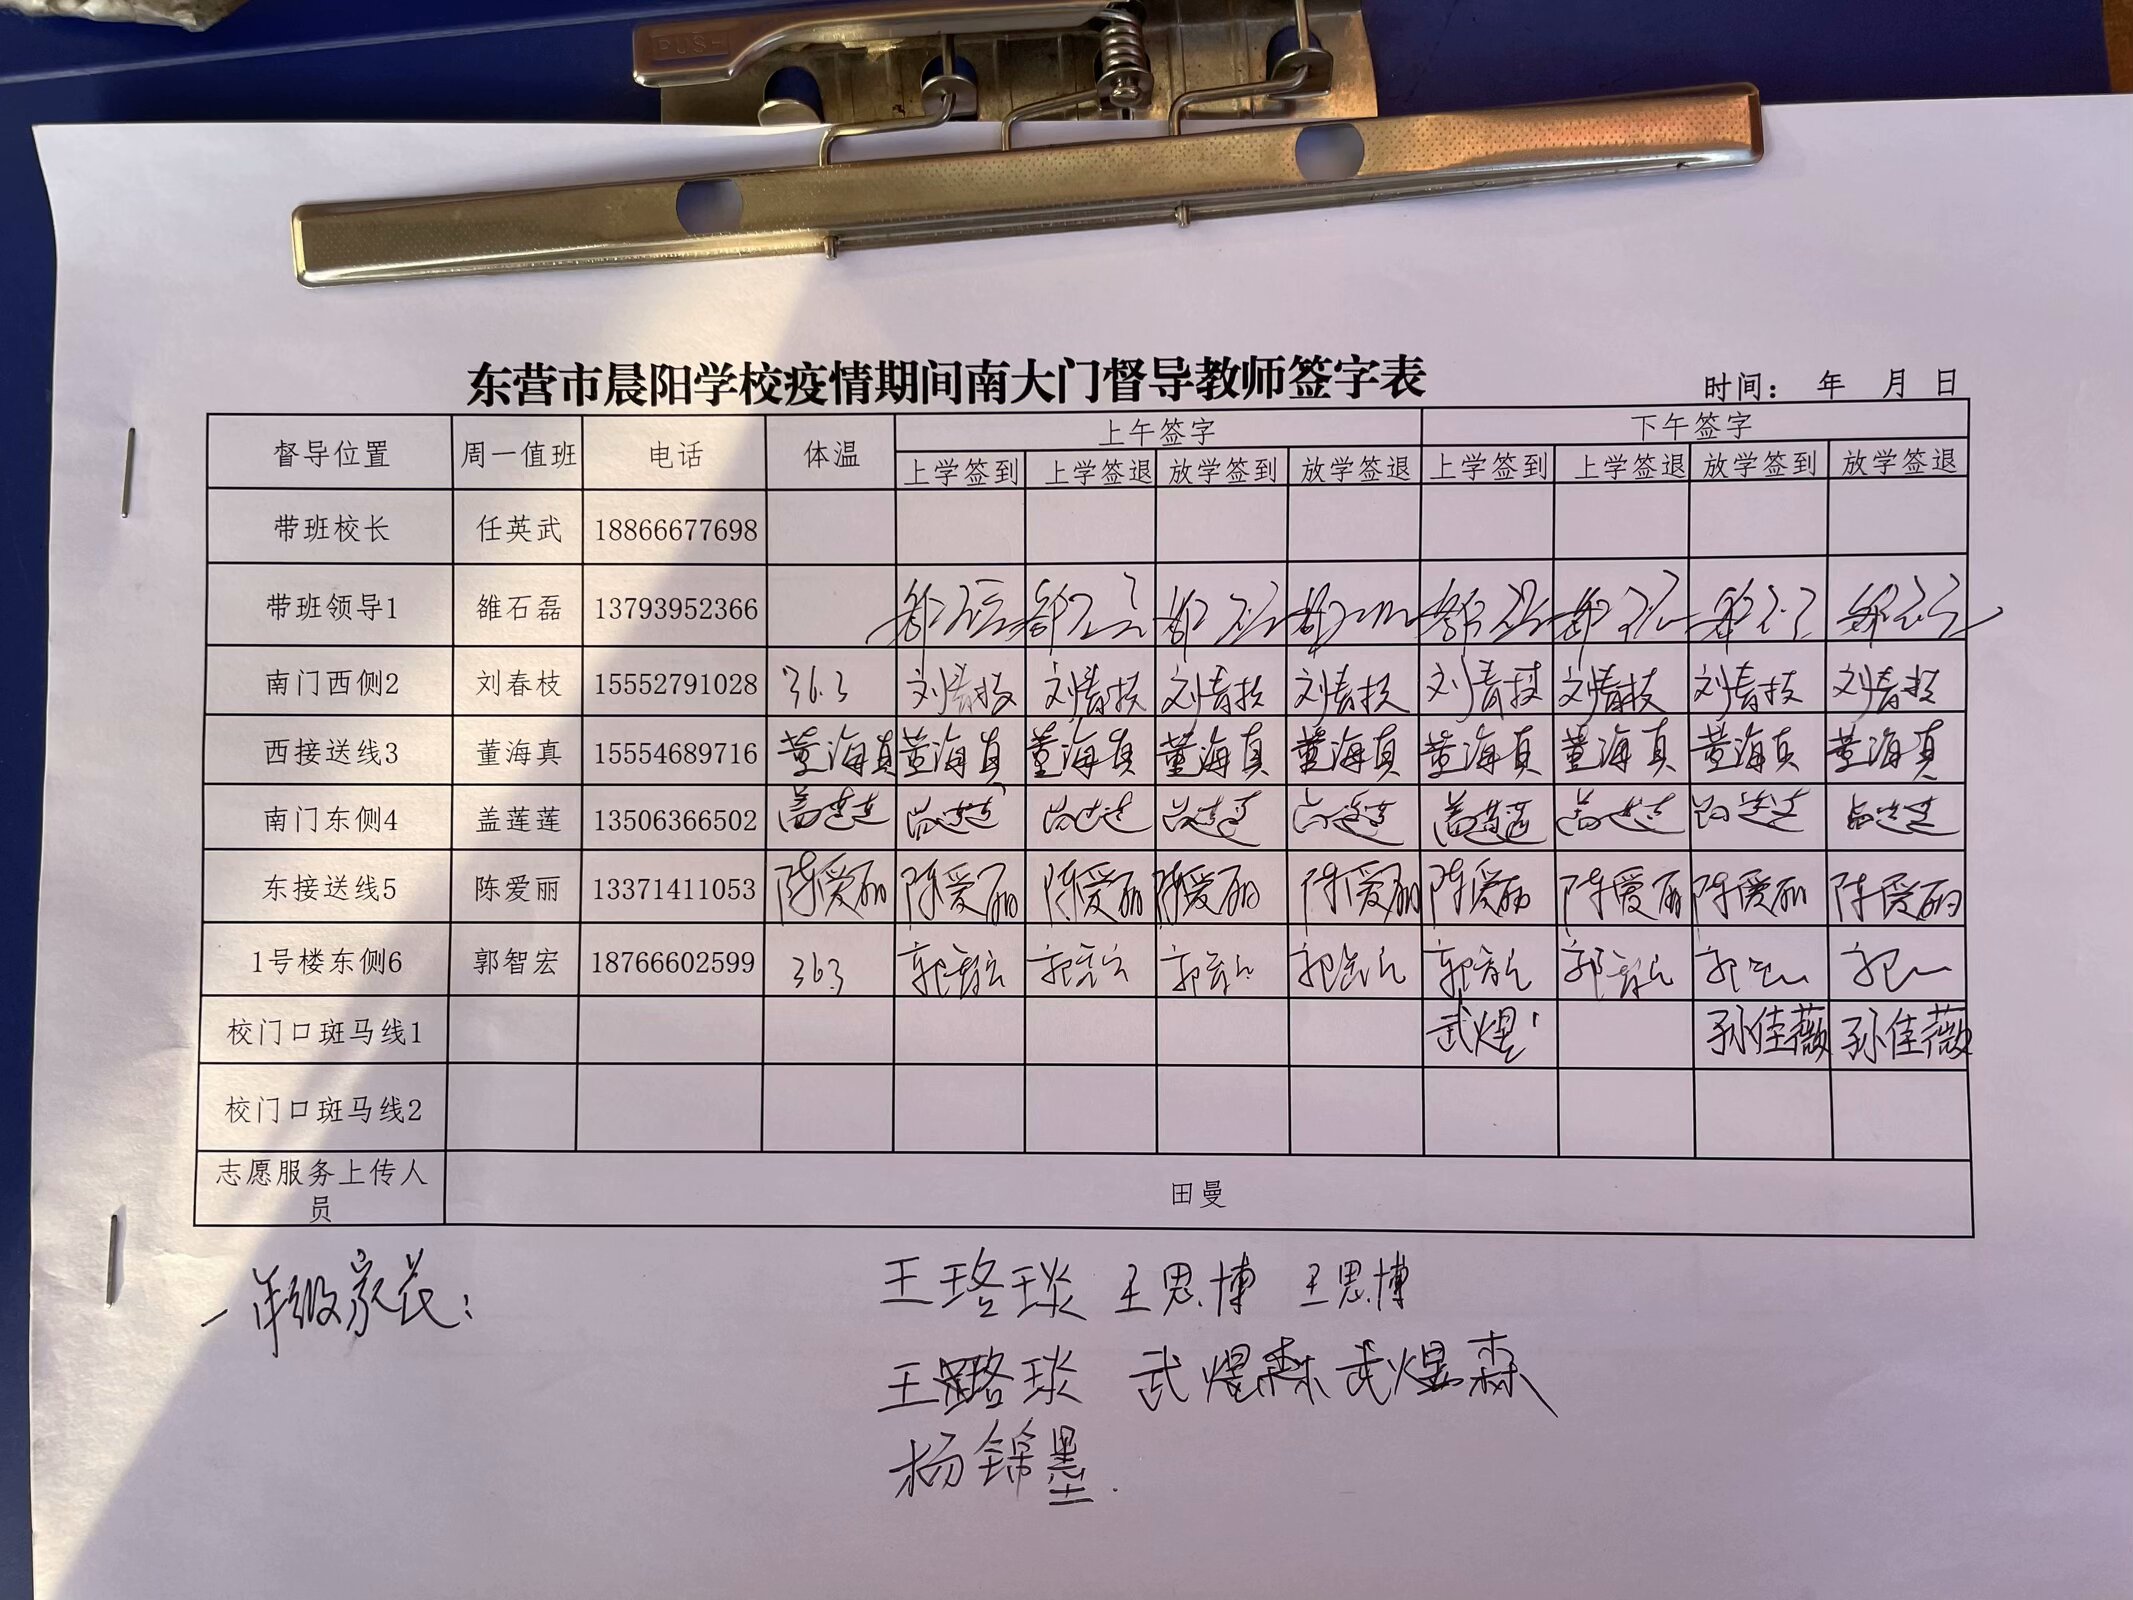 PUSH
东营市晨阳学校疫情期间南大门督导教师签字表
时间： 年 月 日
督导位置 周一值班 电话 体温 上午签字 下午签字
上学签到 上学签退 放学签到 放学签退 上学签到 上学签退 放学签到 放学签退
带班校长 任英武 18866677698
带班领导1 雒石磊 13793952366
南门西侧2 刘春枝 15552791028 36.3 刘春枝 刘春枝 刘春枝 刘春枝 刘春枝 刘春枝 刘春枝 刘春枝
西接送线3 董海真 15554689716 董海真 董海真 董海真 董海真 董海真 董海真 董海真 董海真 董海真
南门东侧4 盖莲莲 13506366502 盖莲莲 盖莲莲 盖莲莲 盖莲莲 盖莲莲 盖莲莲 盖莲莲 盖莲莲 盖莲莲
东接送线5 陈爱丽 13371411053 陈爱丽 陈爱丽 陈爱丽 陈爱丽 陈爱丽 陈爱丽 陈爱丽 陈爱丽 陈爱丽
1号楼东侧6 郭智宏 18766602599 36.3
校门口斑马线1 武煜 孙佳薇 孙佳薇
校门口斑马线2
志愿服务上传人
员
田曼
一年级家长：
王珞琰 王思博 王思博
王璐琰 武煜森 武煜森
杨锦墨